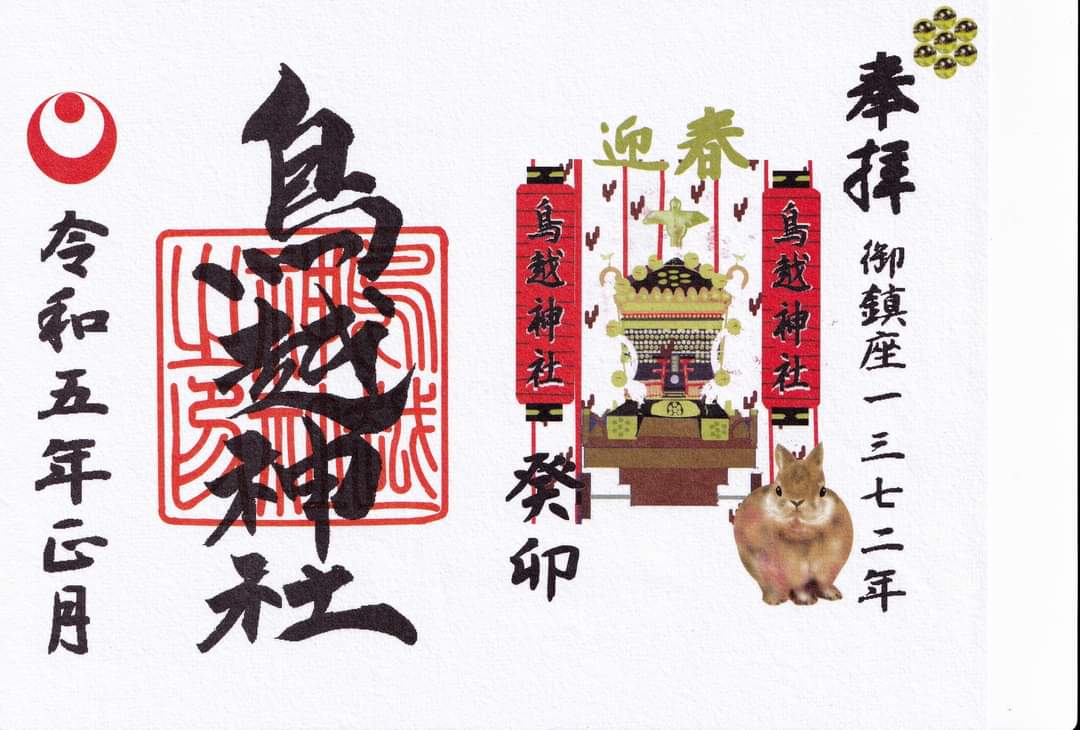 奉拝
御鎮座一三七二年
迎春
鳥越神社
鳥越神社
癸卯
鳥越神社
鳥越
神社
之印
令和五年正月